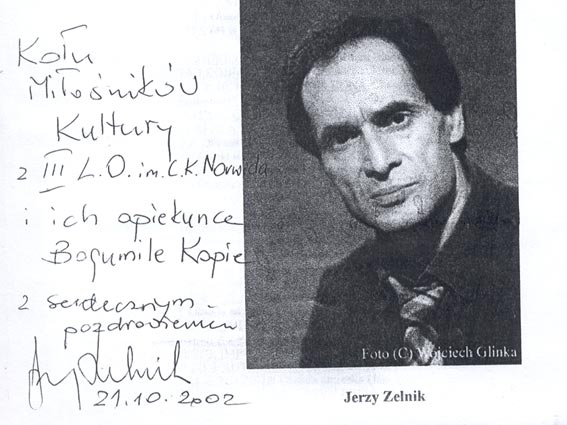 Kołu
Miłośników
Kultury
z III L.O. im. C.K. Norwida
i ich opiekunce
Bogumile Kopie
z serdecznym
pozdrowieniem
Jerzy Zelnik
21.10.2002
Foto (C) Wojciech Glinka
Jerzy Zelnik